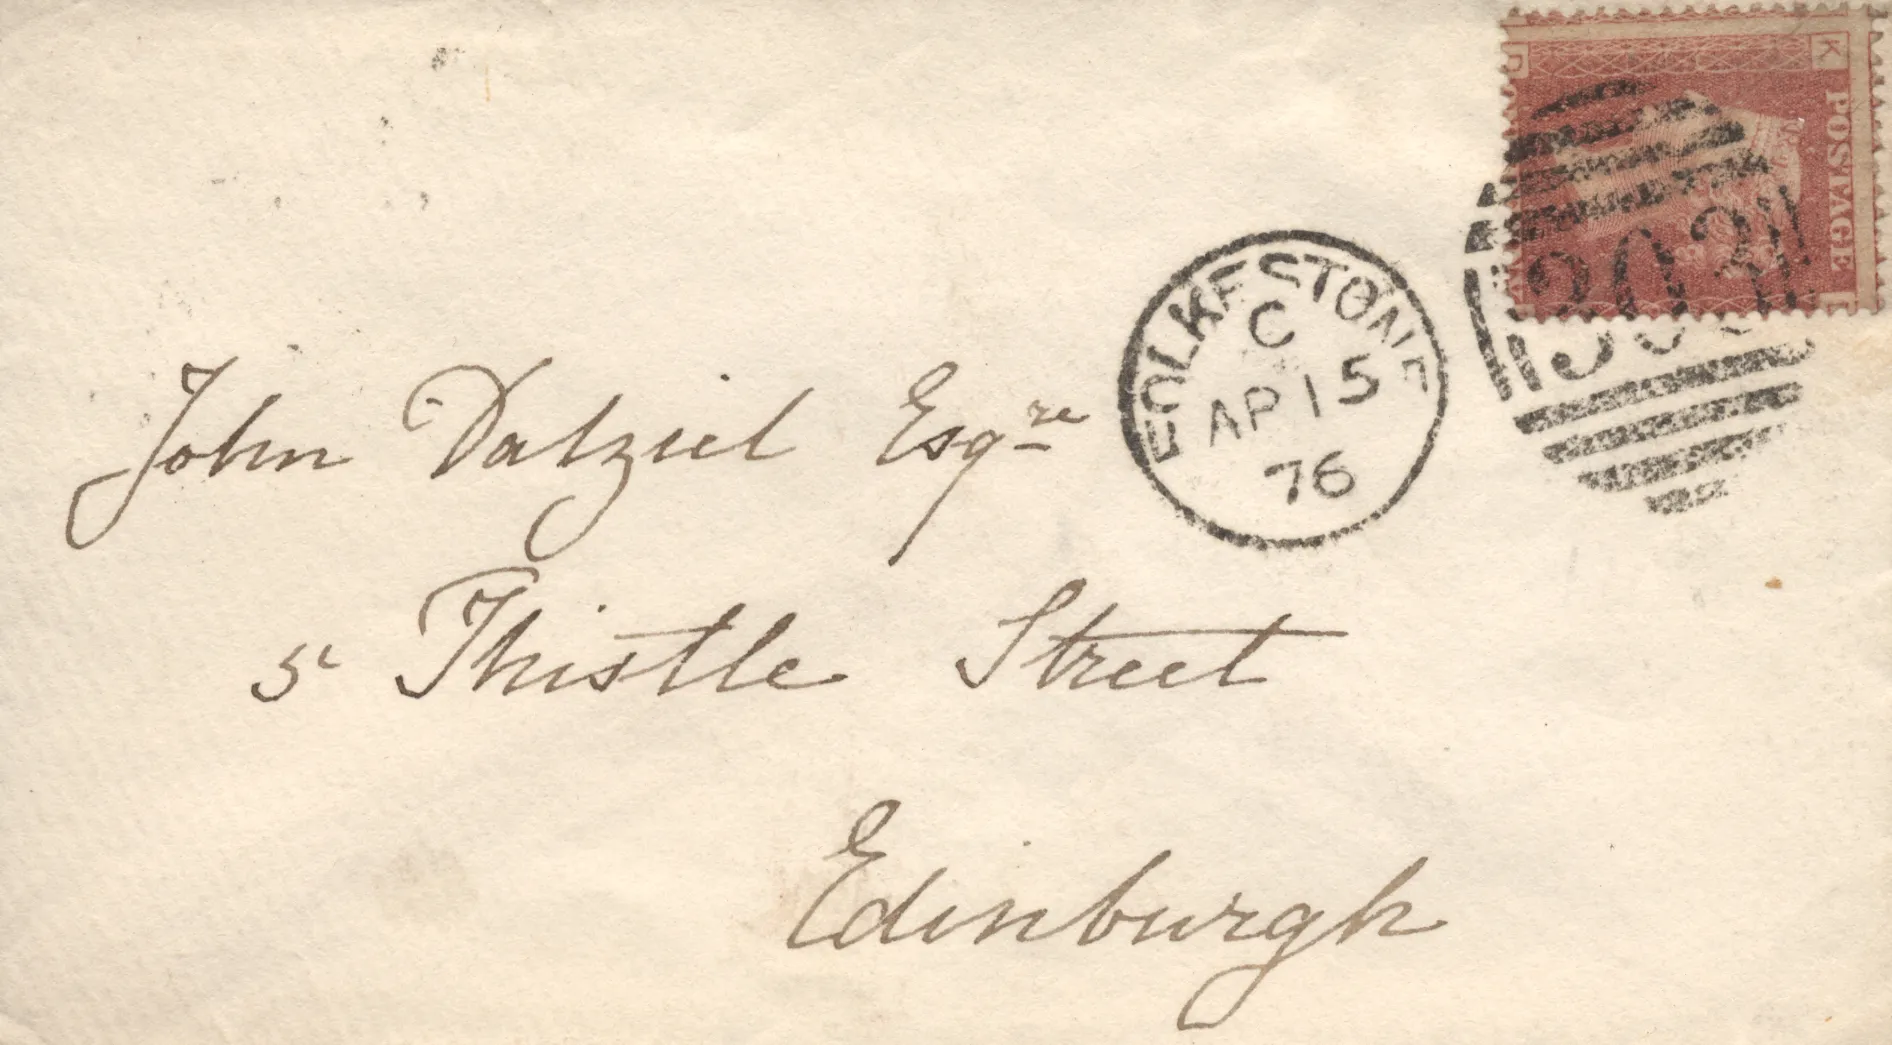 K
D
POSTAGE
L
303
FOLKESTONE
C
AP 15
76
John Dalziel Esqre
5 Thistle Street
Edinburgh